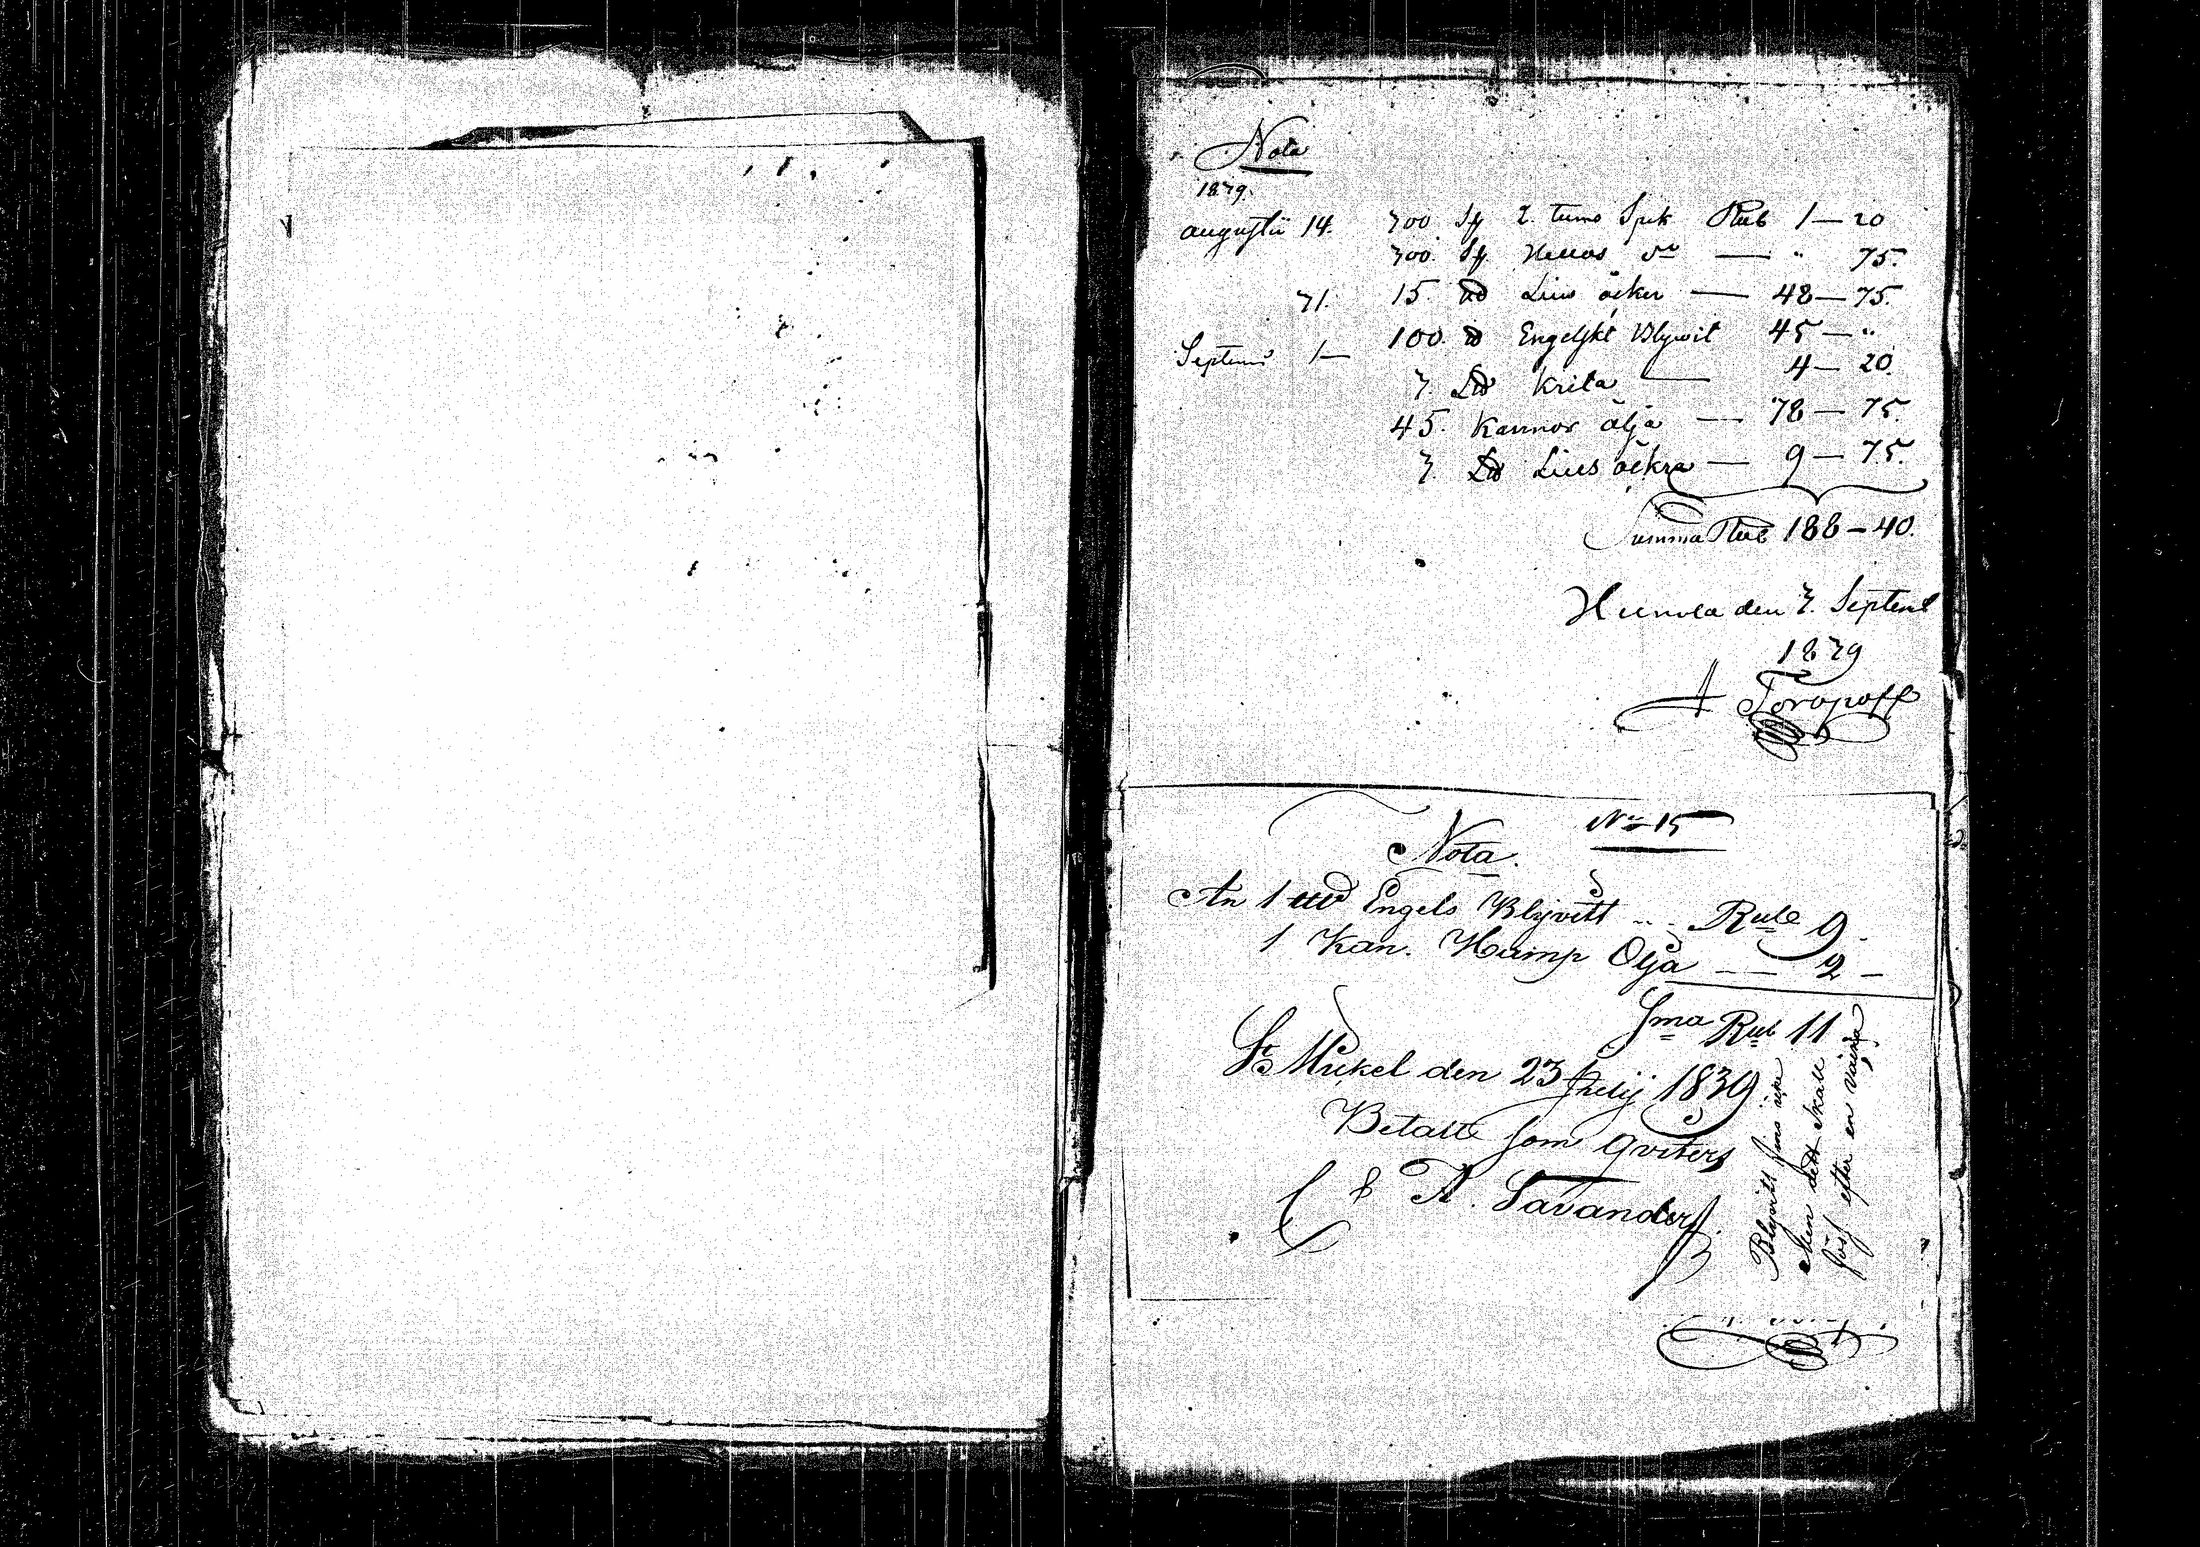 Nota
1839.
augusti 14. 300 St 2. tums Spik Rub 1 — 20
300. St Hellas do — " 75.
31. 15. LB Lius öcker — 48 — 75.
Septemb 1 — 100. lb Engelskt Blywit 45 — "
3. LB Krita — 4 — 20.
45. Kannor älja — 78 — 75.
3. LB Lius öckra — 9 — 75.
Summa Rub 188 — 40.
Heinola den 3. Septemb
1839
A Toropoff
No 15
Nota.
An 1 LB Engels Blijvitt .. Rub 9 -
1 Kan. Hamp Olja — 2 —
Sma Rub 11 -
St Mickel den 23 Julij 1839
Betalt som qviteras
A. Savander
Blijvitt fins icke
men dett skall
fås efter en vicka